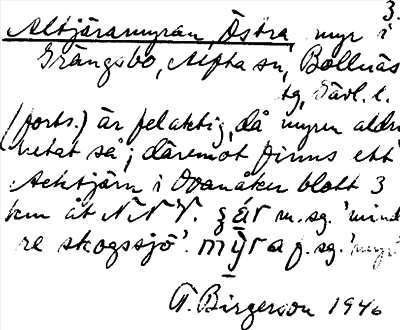 3.
Altjäramyran, Östra, myr i
Grängsbo, Alfta sn, Bollnäs
tg, Gävl. l.
(forts.) är felaktig, då myren aldri
hetat så; däremot finns ett
Acktjärn i Ovanåker blott 3
km åt NNV. ɡár m. sg. 'mind
re skogssjö'. mȳra f. sg. 'myr'
T. Birgerson 1946